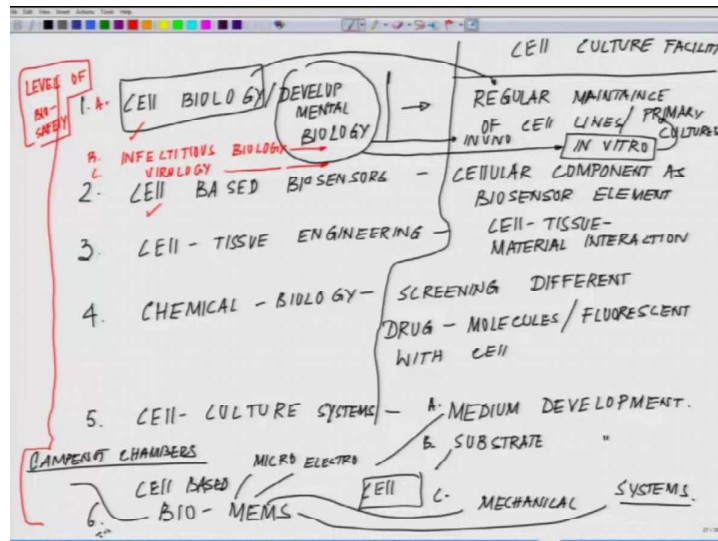 File Edit View Insert Actions Tools Help
CELL CULTURE FACILIT
LEVEL OF
BIO-
SAFETY
1. A. CELL BIOLOGY / DEVELOP
MENTAL
BIOLOGY
→ REGULAR MAINTAINCE
OF CELL LINES / PRIMARY
CULTURES
INVIVO
IN VITRO
B. INFECTITIOUS BIOLOGY
C. VIROLOGY
2. CELL BASED BIOSENSORS - CELLULAR COMPONENT AS
BIOSENSOR ELEMENT
3. CELL - TISSUE ENGINEERING - CELL - TISSUE -
MATERIAL INTERACTION
4. CHEMICAL - BIOLOGY - SCREENING DIFFERENT
DRUG - MOLECULES / FLUORESCENT
WITH CELL
5. CELL - CULTURE SYSTEMS - A. MEDIUM DEVELOPMENT.
B. SUBSTRATE "
CAMPENOT CHAMBERS
MICRO ELECTRO
CELL BASED
CELL
C. MECHANICAL SYSTEMS.
6. BIO - MEMS